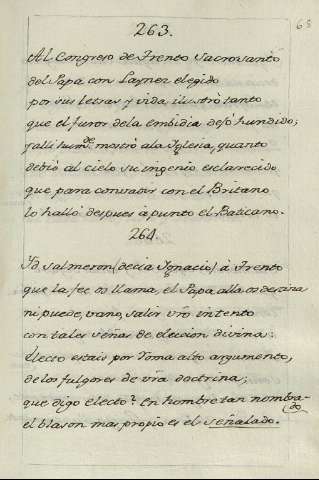 68
263.
Al Congreso de Trento Sacrosanto
del Papa con Laynez elegido
por sus letras y vida ilustrò tanto
que el furor dela embidia dejó hundido;
Salì hum.de mostrò ala Yglesia, quanto
debió al cielo su ingenio esclarecido
que para consultar con el Britano
lo hallò despues à punto el Baticano.
264.
Yd Salmeron (decia Ygnacio) à Trento
que la fee os llama, el Papa alla os destina
ni puede, vano, salir vro intento
con tales señas de eleccion divina:
Electo estais por Toma alto argumento,
de los fulgores de vra doctrina;
que digo electo? En hombre tan nombra-
do
el blason mas propio es el señalado.